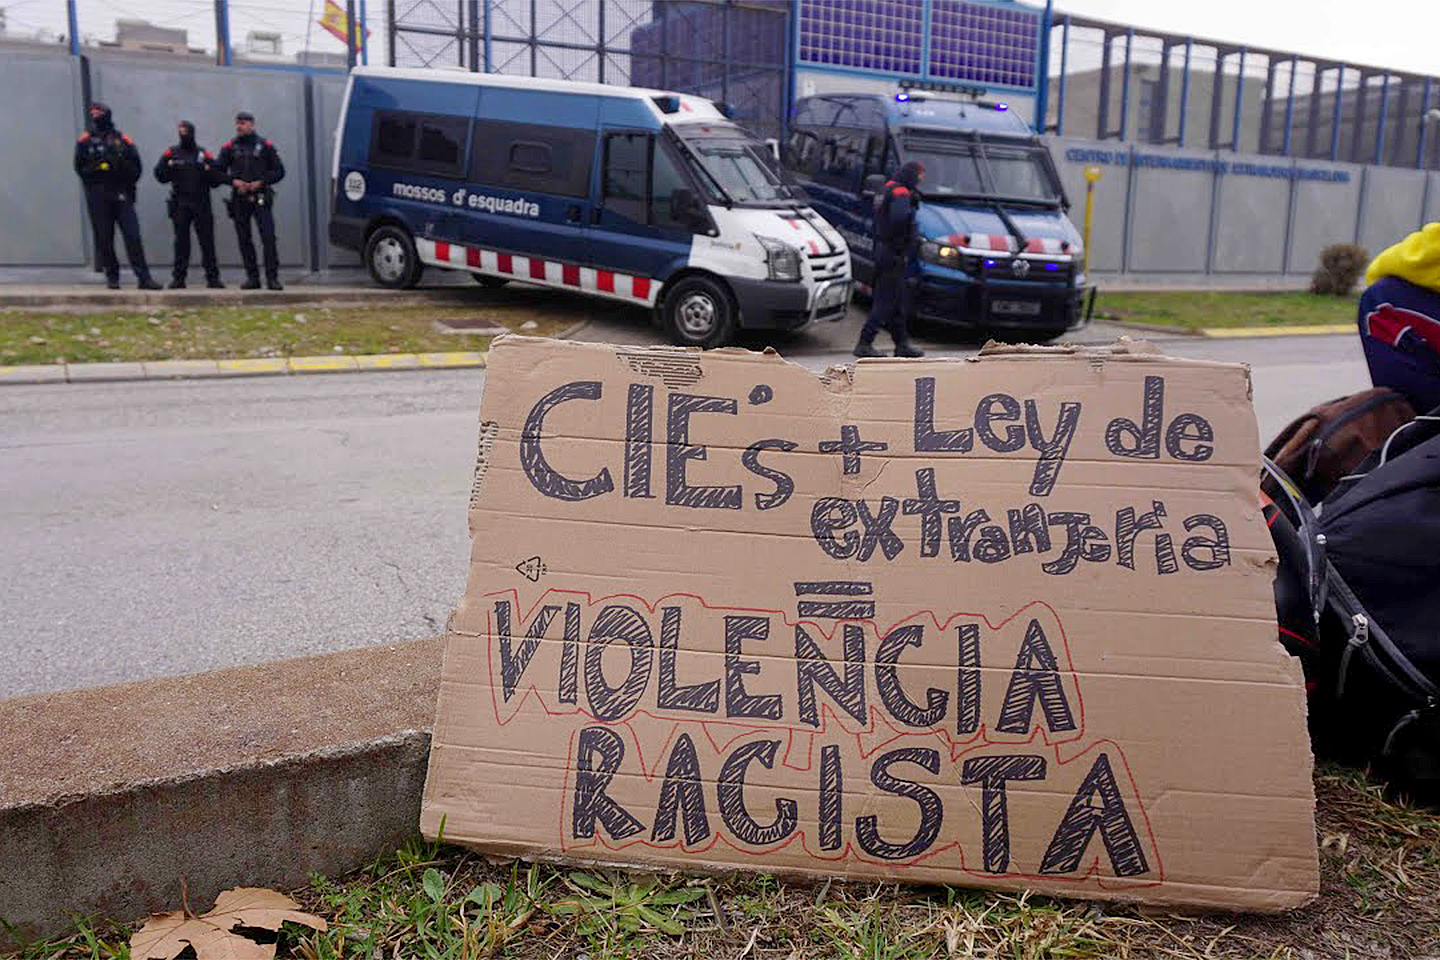 112
mossos d'esquadra
CENTRO DE INTERNAMIENTO DE EXTRANJEROS BARCELONA
CIE's + Ley de
extranjería
=
VIOLENCIA
RACISTA